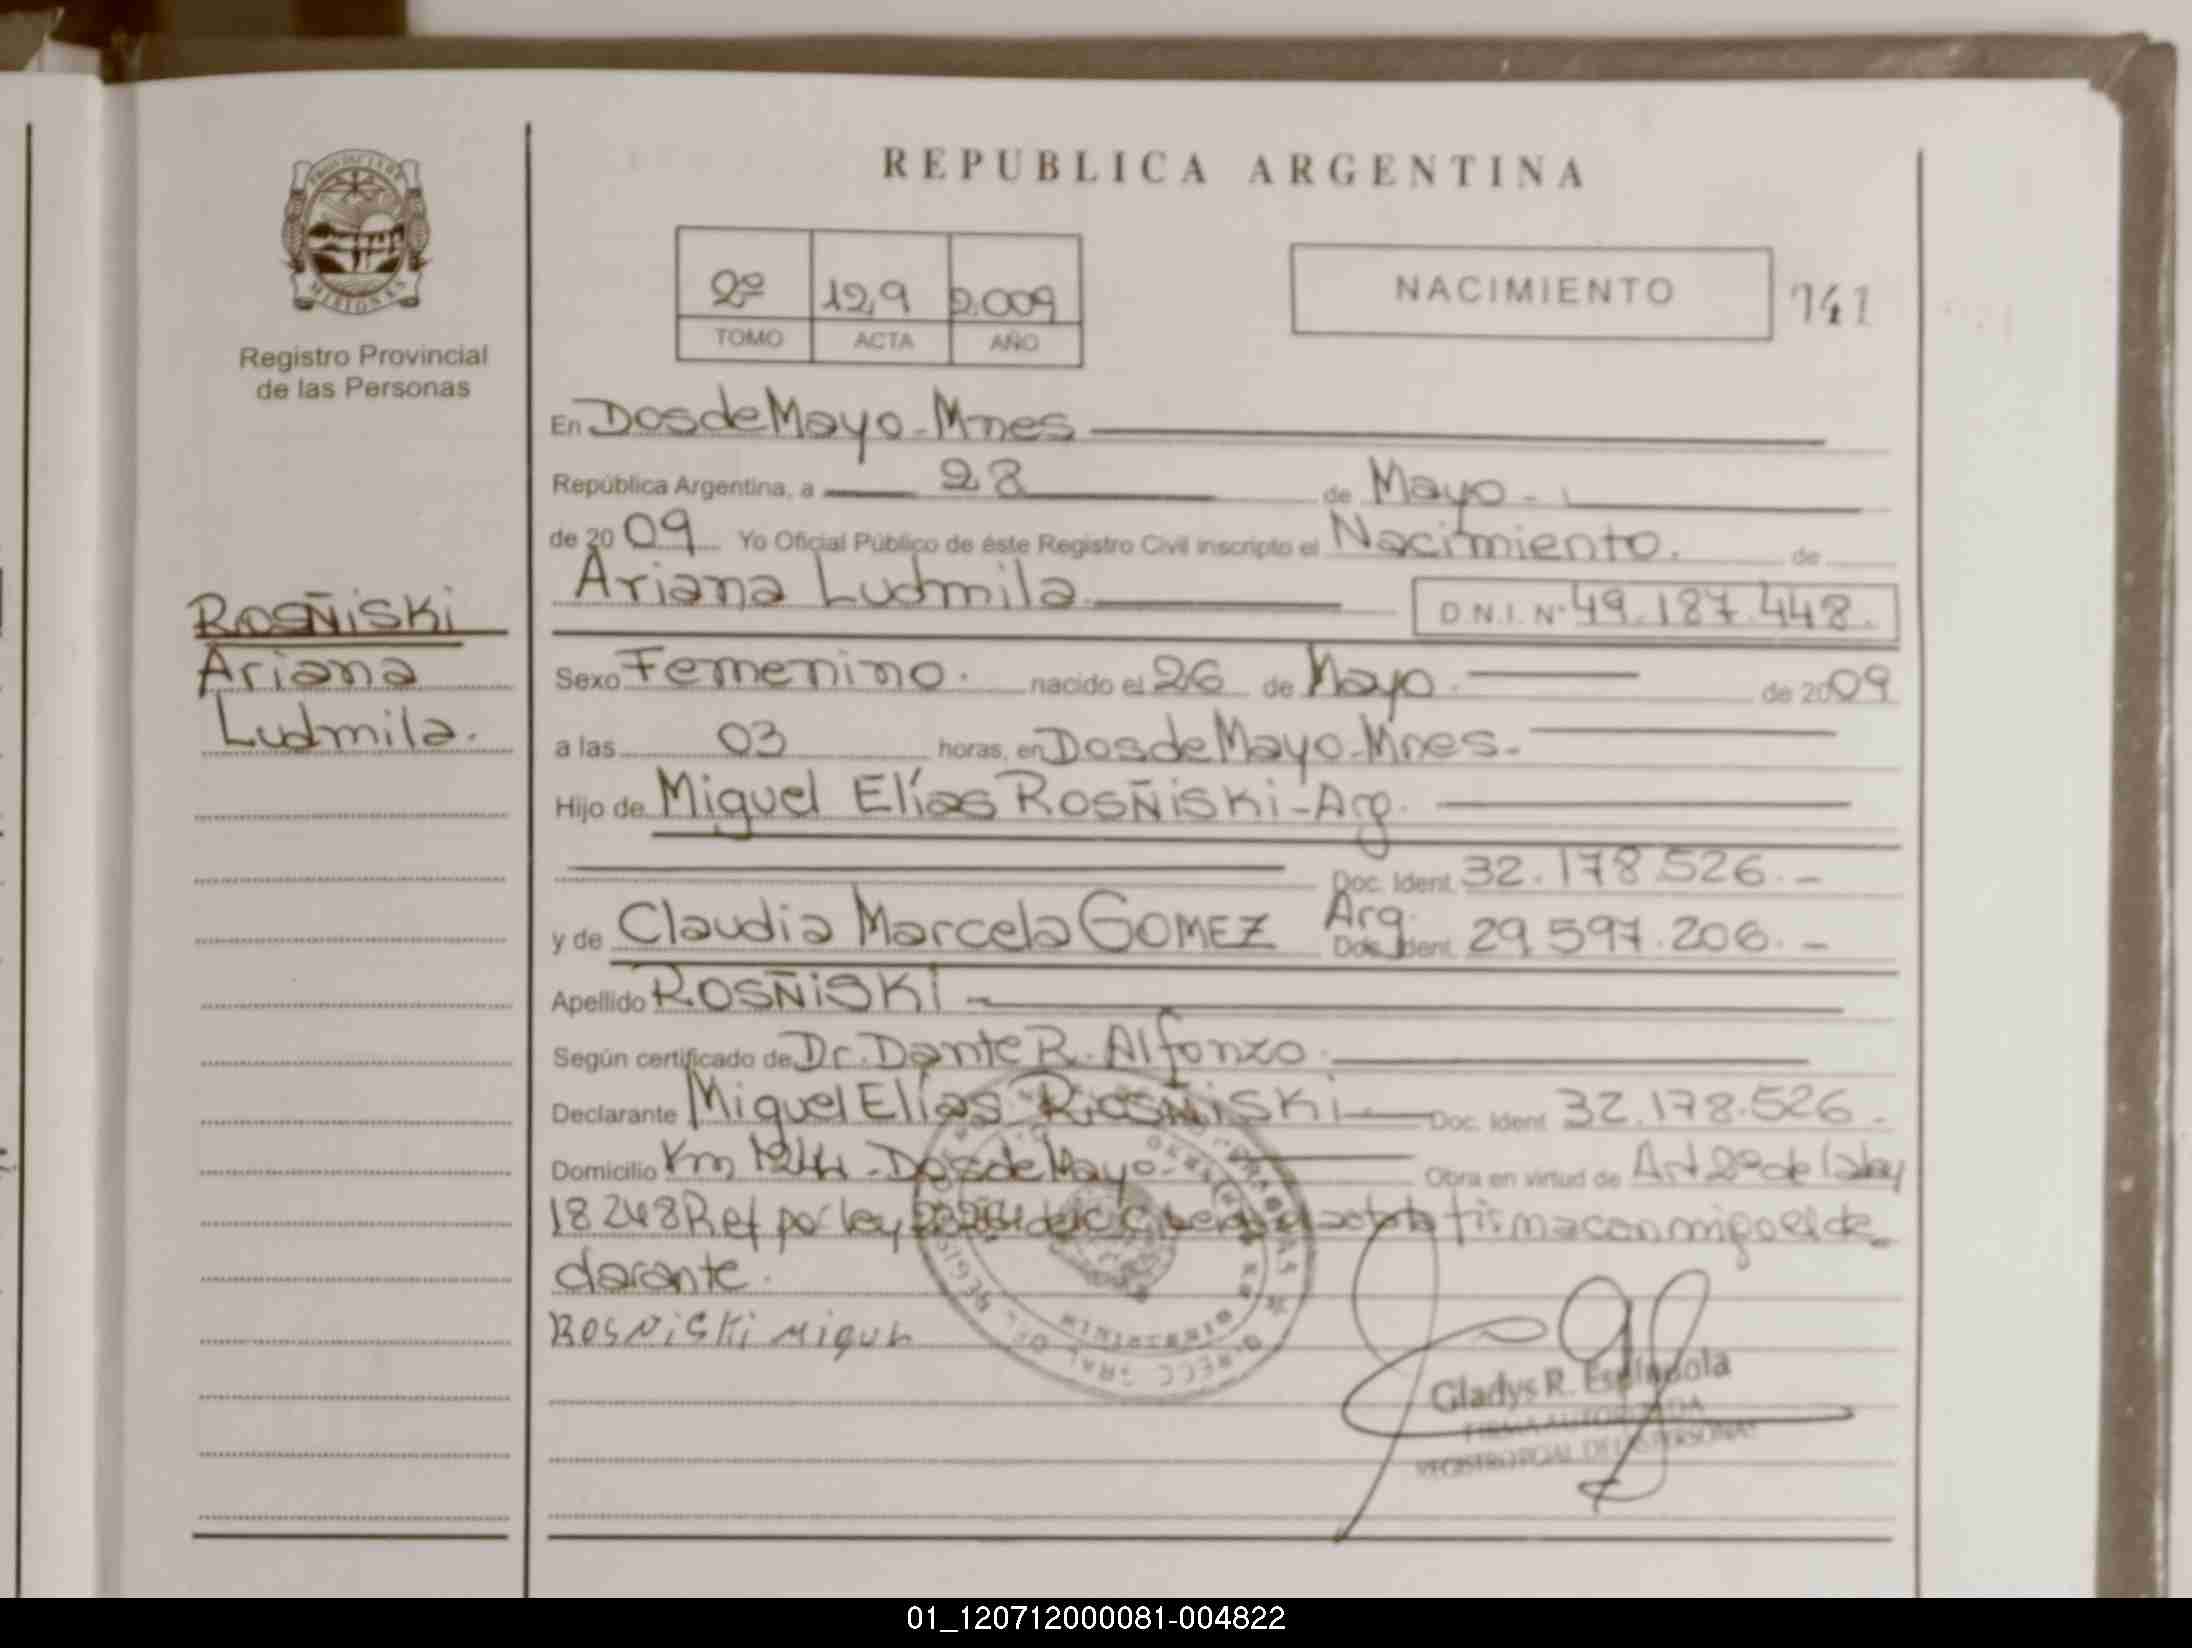 REPUBLICA ARGENTINA
PROVINCIA DE
MISIONES
Registro Provincial
de las Personas
2º 129 2.009
TOMO ACTA AÑO
NACIMIENTO 141
En Dos de Mayo - Mnes
República Argentina, a 28 de Mayo -
de 20 09 Yo Oficial Público de éste Registro Civil inscripto el Nacimiento. de
Ariana Ludmila D.N.I. Nº 49.187.448.
ROSÑiSKi
Ariana
Ludmila.
Sexo Femenino. nacido el 26 de Mayo. de 2009
a las 03 horas, en Dos de Mayo - Mnes.
Hijo de Miguel Elías ROSÑiSKi - Arg.
Doc. Ident. 32.178.526. -
y de Claudia Marcela GOMEZ Arg. Doc. Ident. 29.597.206. -
Apellido ROSÑiSKi -
Según certificado de Dr. Dante R. Alfonzo.
Declarante Miguel Elías ROSÑiSKi Doc. Ident. 32.178.526 -
Domicilio Km - Dos de Mayo - Obra en virtud de Art 2º de la ley
18248 Ref por ley acta firma conmigo el de_
clarante.
ROSNiSKi MiGUL
Gladys R. Espíndola
FIRMA AUTORIZADA
REGISTRO PCIAL DE LAS PERSONAS
01_120712000081-004822